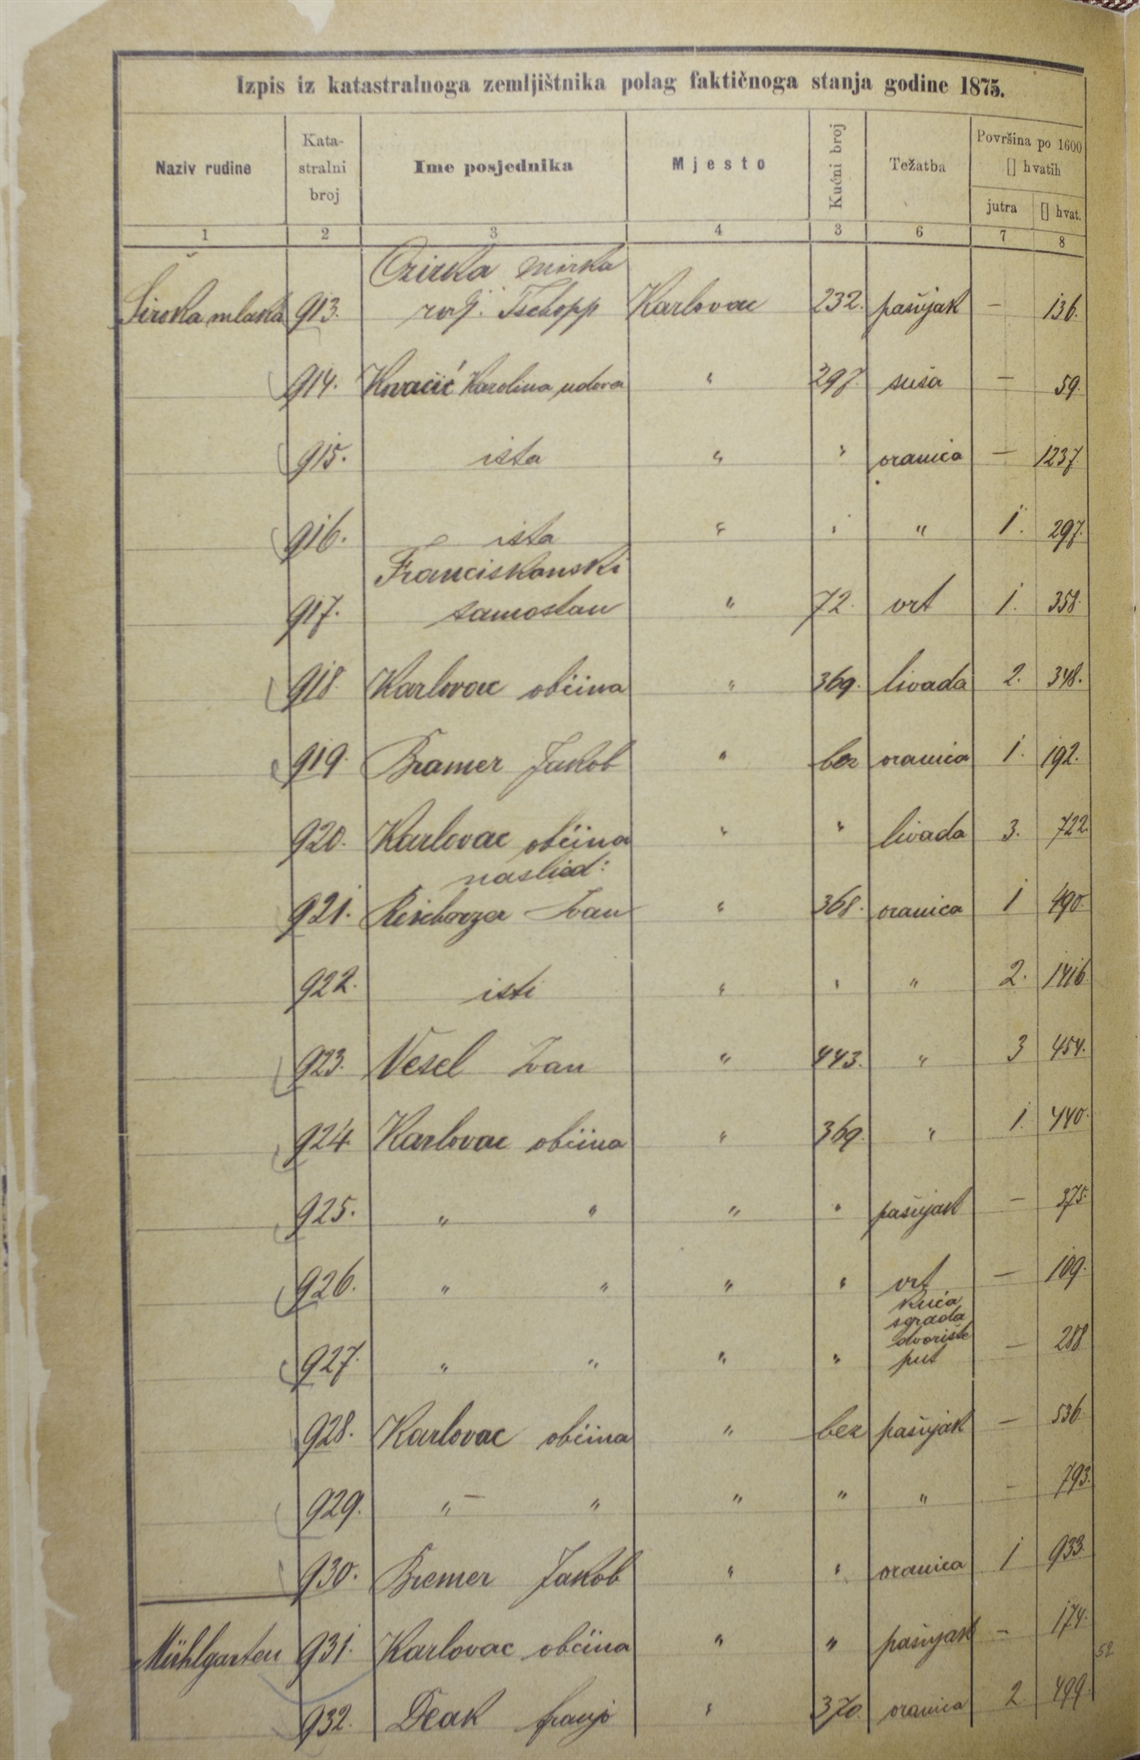 Izpis iz katastralnoga zemljištnika polag faktičnoga stanja godine 1875.
Naziv rudine Kata- stralni broj Ime posjednika Mjesto Kućni broj Težatba Površina po 1600 [] hvatih
jutra [] hvat.
1 2 3 4 3 6 7 8
mirka
Široka mlaka 913. rođ. Tschopp Karlovac 232. pašnjak — 136.
914. Karolina udova " 297. suša — 59.
915. ista " " oranica — 1237
916. ista " " " 1. 297.
Franciskanski
917. samostan " 72. vrt 1. 358.
918. Karlovac občina " 369. livada 2. 348.
919. Bramer Jakob " bez oranica 1. 192.
920. Karlovac občina " " livada 3. 722.
naslied:
921. Ivan " 368. oranica 1 490.
922. isti " " " 2. 1416
923. Vesel Ivan " 443. " 3 454.
924 Karlovac občina " 369. " 1. 440.
925. " " " " pašnjak — 375.
926. " " " " vrt — 109.
kuća
sgrada
dvorište
927. " " " " put — 288
928. Karlovac občina " bez pašnjak — 536
929. "— " " " " — 793.
930. Bremer Jakob " " oranica 1 933.
Mühlgarten 931. Karlovac občina " " pašnjak — 174.
52
932. Deak franjo " 370. oranica 2 499.